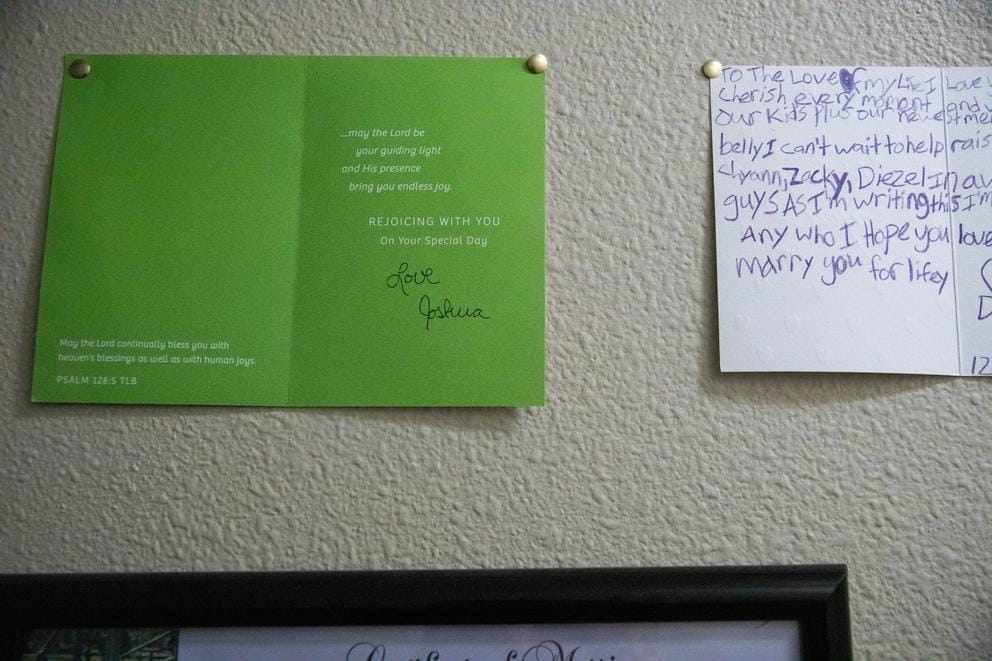 ...may the Lord be
your guiding light
and His presence
bring you endless joy.
REJOICING WITH YOU
On Your Special Day
Love
Joshua
May the Lord continually bless you with
heaven's blessings as well as with human joys.
PSALM 128:5 TLB
To The Love of my Life I Love
Cherish every moment and
our Kids Plus our
belly I can't wait to help rais
chyann, Zacky, Diezel In
guys AS I'm writing this I'm
Any who I Hope you love
marry you for lifey
D
12